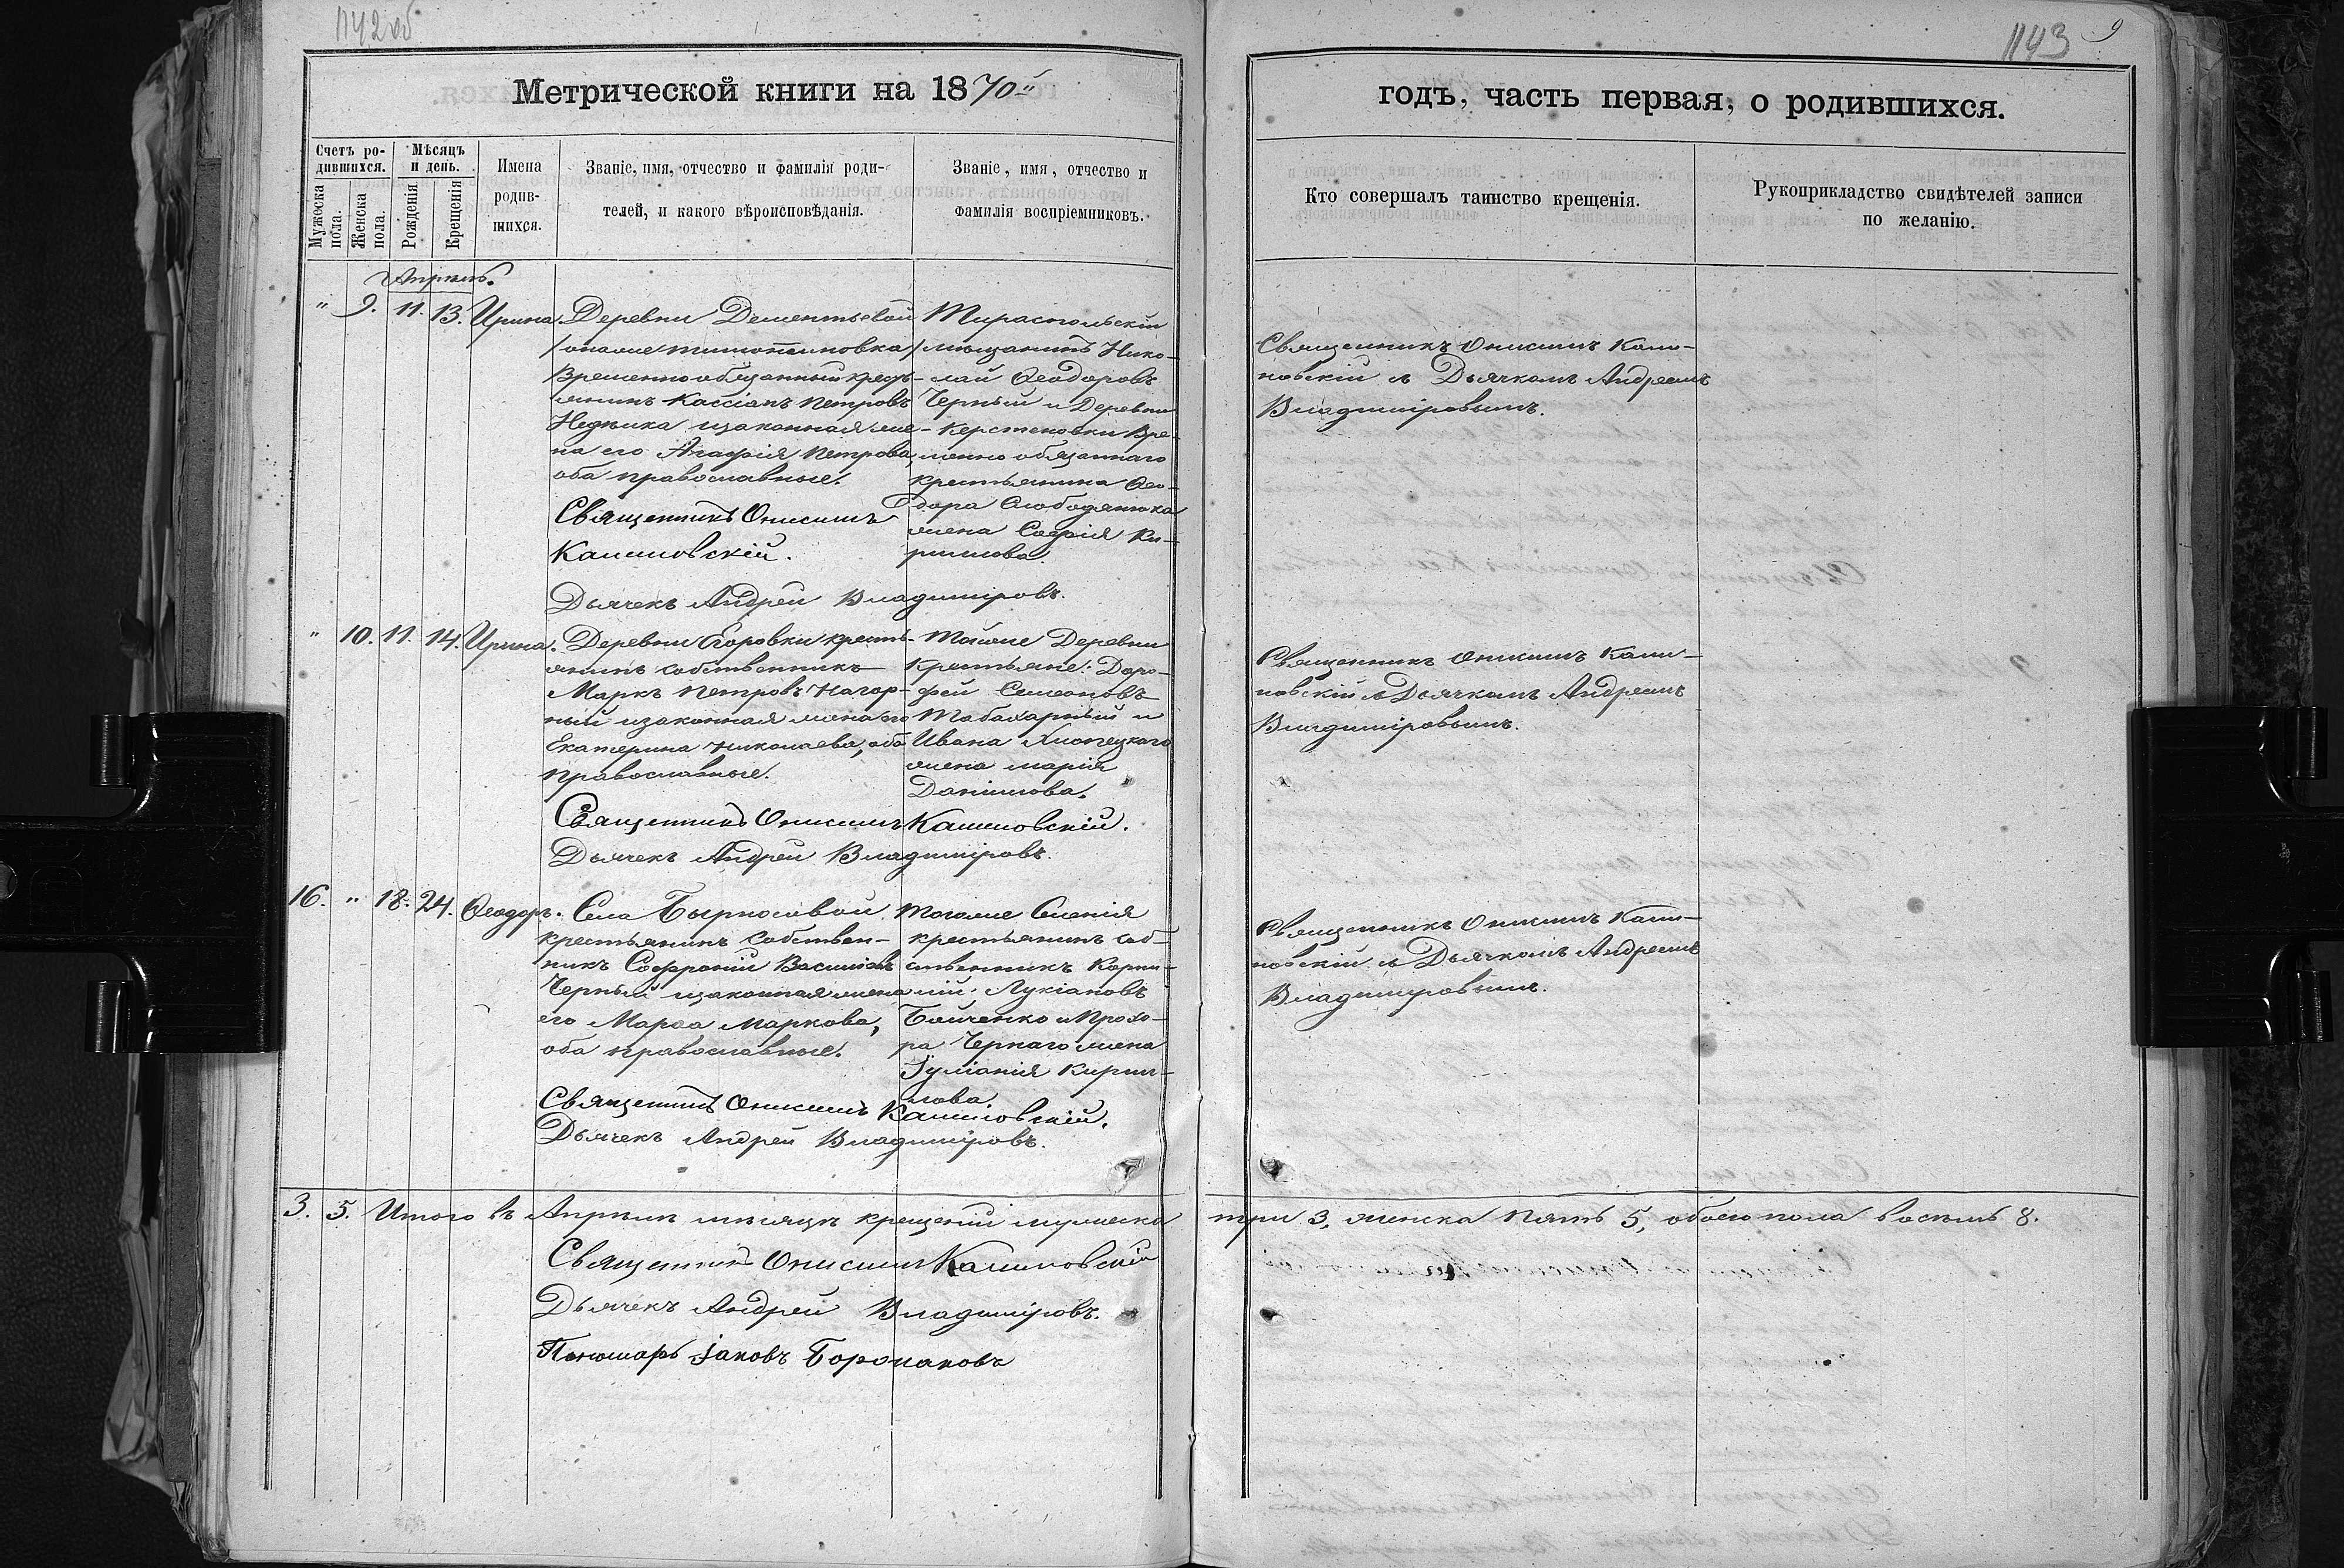 1142об
Метрической книги на 1870й
Счетъ родившихся.
Мужеска пола.
Женска пола.
Мѣсяцъ и день.
Рожденія.
Крещенія
Имена родившихся.
Званіе, имя, отчество и фамилія роди-
телей, и какого вѣроисповѣданія.
Званіе, имя, отчество и
фамилія воспріемниковъ.
Апрѣль.
" 9. 11. 13. Ирина.
Деревни Дементьевой
временнообязанный кресть-
янинъ Кассіанъ Петровъ
изаконная же-
на его Агафія Петрова,
оба православные.
Священникъ Онисимъ
Калиновскій.
Дьячекъ Андрей Владиміровъ.
Тираспольскій
мѣщанинъ Нико-
лай Ѳеодоровъ
Черный и Деревни
Керстеновки вре-
менно обязаннаго
крестьянина Ѳео-
дора Слободянюка
жена Софія Ки-
рилова.
" 10. 11. 14. Ирина.
Деревни Егоровки кресть-
янинъ собственникъ
Маркъ Петровъ Нагор-
ный изаконная жена его
Екатерина Николаева, оба
православные.
Священникъ Онисимъ Калиновскій.
Дьячекъ Андрей Владиміровъ.
Тойже Деревни
крестьяне: Доро-
фей Семеоновъ
Табахарный и
Ивана Хмелецкаго
жена Марія
Данилова.
16. " 18. 24. Ѳеодоръ.
Села Бырносовой
крестьянинъ собствен-
никъ Софроній Васильевъ
Черный изаконная жена
его Марѳа Маркова,
оба православные.
Священникъ Онисимъ Калиновскій.
Дьячекъ Андрей Владиміровъ.
Тогоже Селенія
крестьянинъ соб-
ственникъ Корни-
лій Лукіановъ
Бойченко и Прохо-
ра Чернаго жена
Іуліанія Кирил-
лова
3. 5. Итого въ Апрѣлѣ мѣсяцѣ крещеній мужеска
Священникъ Онисимъ Калиновскій
Дьячекъ Андрей Владиміровъ.
Пономарь Іаковъ
1143 9
годъ, часть первая, о родившихся.
Кто совершалъ таинство крещенія.
Рукоприкладство свидѣтелей записи
по желанію.
Священникъ Онисимъ Кали-
новскій съ Дьячкомъ Андреемъ
Владиміровымъ.
Священникъ Онисимъ Кали-
новскій съ Дьячкомъ Андреемъ
Владиміровымъ.
Священникъ Онисимъ Кали-
новскій съ Дьячкомъ Андреемъ
Владиміровымъ.
три 3, женска пять 5, обоего пола восемь 8.